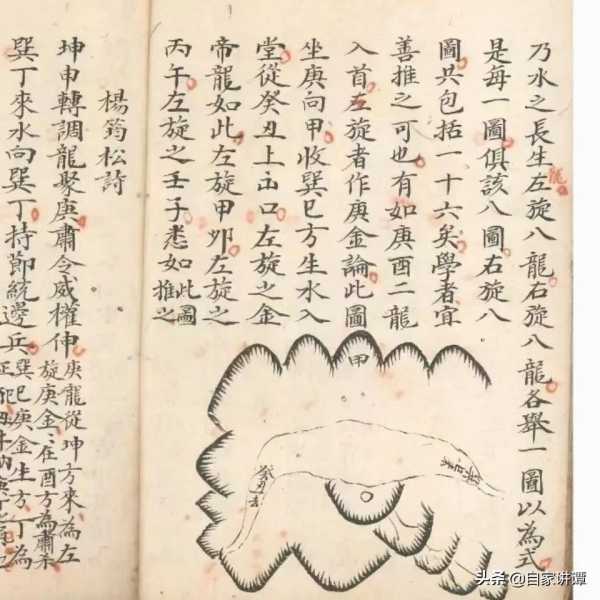 乃水之長生左旋八龍右旋八龍各舉一圖以為式
龍
是每一圖俱該八圖右旋八
圖共包括一十六矣學者宜
善推之可也有如庚酉二龍
入首左旋者作庚金論此圖
坐庚向甲收巽巳方生水入
堂從癸丑上出口左旋之金
帝龍如此左旋甲卯左旋之
丙午左旋之壬子悉如此圖推之
甲
癸丑去
楊筠松詩
坤申轉調龍聚庚肅令威權伸
庚龍從坤方來為左
旋庚金在酉方為肅
巽丁來水向巽丁持節統邊兵
巽巳庚金生方丁為
头条@自家讲谭